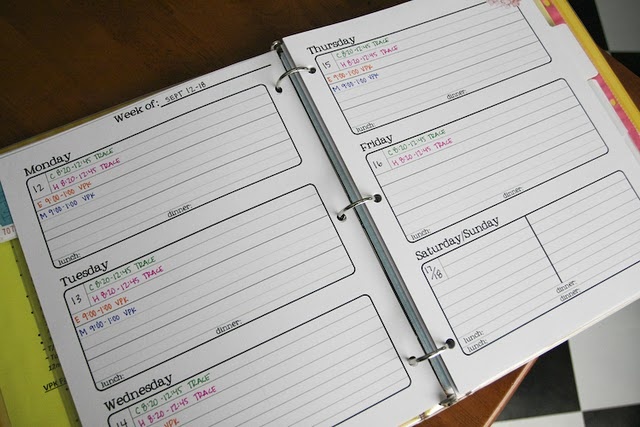 Week of: SEPT 12-18
Monday
12
C 8:20-12:45 TRACE
H 8:20-12:45 TRACE
E 9:00-1:00 VPK
M 9:00-1:00 VPK
dinner:
lunch:
Tuesday
13
C 8:20-12:45 TRACE
H 8:20-12:45 TRACE
E 9:00-1:00 VPK
M 9:00-1:00 VPK
dinner:
lunch:
Wednesday
14
C 8:20-12:45 TRACE
H 8:20-12:45 TRACE
Thursday
15
C 8:20-12:45 TRACE
H 8:20-12:45 TRACE
E 9:00-1:00 VPK
M 9:00-1:00 VPK
dinner:
lunch:
Friday
16
C 8:20-12:45 TRACE
H 8:20-12:45 TRACE
dinner:
lunch:
Saturday/Sunday
17/18
dinner:
dinner:
lunch:
lunch: